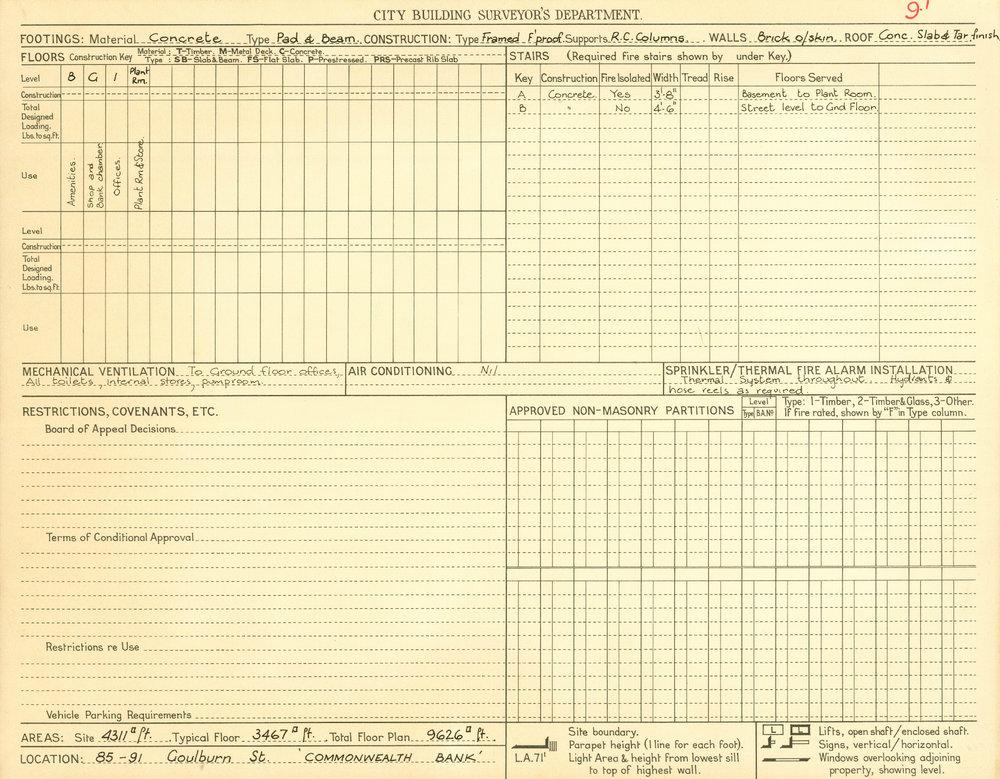 CITY BUILDING SURVEYOR'S DEPARTMENT.
9.1
FOOTINGS: Material Concrete Type Pad & Beam. CONSTRUCTION: Type Framed F'proof. Supports R.C. Columns WALLS Brick o/skin. ROOF Conc. Slab & Tar finish
FLOORS Construction Key Material: T-Timber. M-Metal Deck. C-Concrete.
Type: SB-Slab & Beam. FS-Flat Slab. P-Prestressed. PRS-Precast Rib Slab
Level B G 1 Plant Rm.
Construction
Total Designed Loading. Lbs. to sq. ft.
Use Amenities. Shop and Bank chamber Offices. Plant Rm & Store.
Level
Construction
Total Designed Loading. Lbs. to sq. ft.
Use
STAIRS (Required Fire stairs shown by under Key.)
Key Construction Fire Isolated Width Tread Rise Floors Served
A Concrete Yes 3'-8" Basement to Plant Room.
B " No 4'-6" Street level to Gnd Floor.
MECHANICAL VENTILATION To Ground floor offices,
All toilets, internal stores, pumproom.
AIR CONDITIONING Nil
SPRINKLER/THERMAL FIRE ALARM INSTALLATION
Thermal System throughout. Hydrants &
hose reels as required
RESTRICTIONS, COVENANTS, ETC.
Board of Appeal Decisions
Terms of Conditional Approval
Restrictions re Use
Vehicle Parking Requirements
APPROVED NON-MASONRY PARTITIONS
Level
Type B.A.No
Type: 1-Timber, 2-Timber & Glass, 3-Other.
If fire rated, shown by "F" in Type column.
AREAS: Site 4311 □ ft. Typical Floor 3467 □ ft. Total Floor Plan 9626 □ ft.
LOCATION: 85-91 Goulburn St. 'COMMONWEALTH BANK'
Site boundary.
Parapet height (1 line for each foot).
L.A.71' Light Area & height from lowest sill
to top of highest wall.
L L Lifts, open shaft/enclosed shaft.
Signs, vertical/horizontal.
Windows overlooking adjoining
property, showing level.